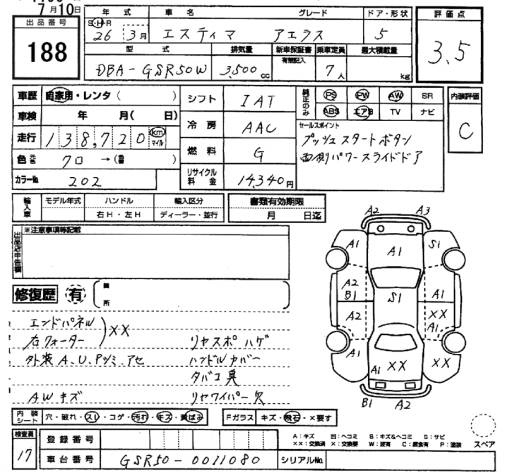 7月10日
出品番号
188
年式
車名
グレード
ドア・形状
評価点
26年3月
エスティマ
アエラス
5
3.5
型式
排気量
新車保証書
有無記入
乗車定員
最大積載量
DBA-GSR50W
3,500cc
7人
kg
車歴
自家用・レンタ( )
シフト
IAT
純正のみ
PS PW AW SR
ABS エアB TV ナビ
内装評価
C
車検
年 月( 日)
冷房
AAC
セールスポイント
プッシュスタートボタン
両側パワースライドドア
走行
138,720 km マイル
燃料
G
色
クロ→( )
カラーNo.
202
リサイクル料金
14,340円
輸入車
モデル年式
ハンドル
右H・左H
輸入区分
ディーラー・並行
書類有効期限
月 日迄
※注意事項等記載
修復歴
有
箇所
エンドパネル
右クォーター
XX
外装A、U、Pシミ、アセ
AWキズ
リヤスポハゲ
ハンドルカバー
タバコ臭
リヤワイパー欠
A2 A3
A1 A1 S1
A2 B1 S1 A1
A2 XX
A1 A1
A1 XX XX
B1 A2
内装シート
穴・破れ・スレ・コゲ・汚れ・キズ・黄ばみ
Fガラス
キズ・飛石・×要す
スペア
検査員
17
登録番号
車台番号
GSR50-0011080
シリアルNo.
A:キズ 凹:ヘコミ B:キズ&ヘコミ S:サビ
XX:交換済 X:交換要 W:波有 C:腐食有 P:塗装